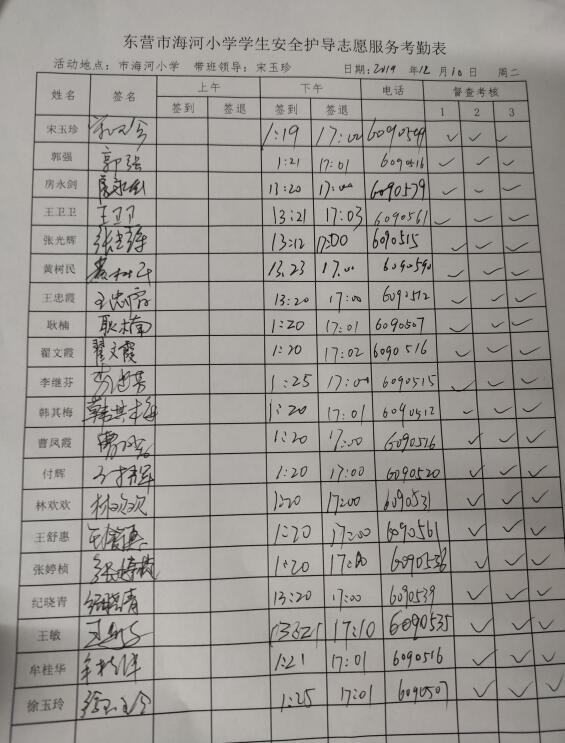 东营市海河小学学生安全护导志愿服务考勤表
活动地点：市海河小学 带班领导：宋玉珍 日期：2019 年12 月10 日 周二
姓名 签名 上午 下午 电话 督查考核
签到 签退 签到 签退 1 2 3
宋玉珍 1:19 17:02 ✓ ✓ ✓
郭强 郭强 1:21 17:01 6090516 ✓ ✓ ✓
房永剑 房永剑 13:20 17:00 6090539 ✓ ✓ ✓
王卫卫 王卫卫 13:21 17:03 6090561 ✓ ✓ ✓
张光辉 张光辉 13:12 17:00 6090515 ✓ ✓ ✓
黄树民 黄树民 13.23 17.00 ✓ ✓ ✓
王忠霞 王忠霞 13:20 17:00 6090512 ✓ ✓ ✓
耿楠 耿楠 1:20 17:01 6090507 ✓ ✓ ✓
翟文霞 翟文霞 1:20 17:02 6090516 ✓ ✓ ✓
李继芬 1:25 17:00 6090515 ✓ ✓ ✓
韩其梅 韩其梅 1:20 17:01 6090512 ✓ ✓ ✓
曹凤霞 1:20 17:00 ✓ ✓ ✓
付辉 1:20 17:00 6090520 ✓ ✓ ✓
林欢欢 林欢欢 1:20 17:00 ✓ ✓ ✓
王舒惠 1:20 17:00 6090561 ✓ ✓ ✓
张婷桢 张婷桢 1:20 17:00 6090536 ✓ ✓ ✓
纪晓青 纪晓青 13:20 17:00 6090539 ✓ ✓ ✓
王敏 17:10 6090535 ✓ ✓ ✓
牟桂华 牟桂华 1:21 17:01 6090516 ✓ ✓ ✓
徐玉玲 徐玉玲 1:25 17:01 6090507 ✓ ✓ ✓